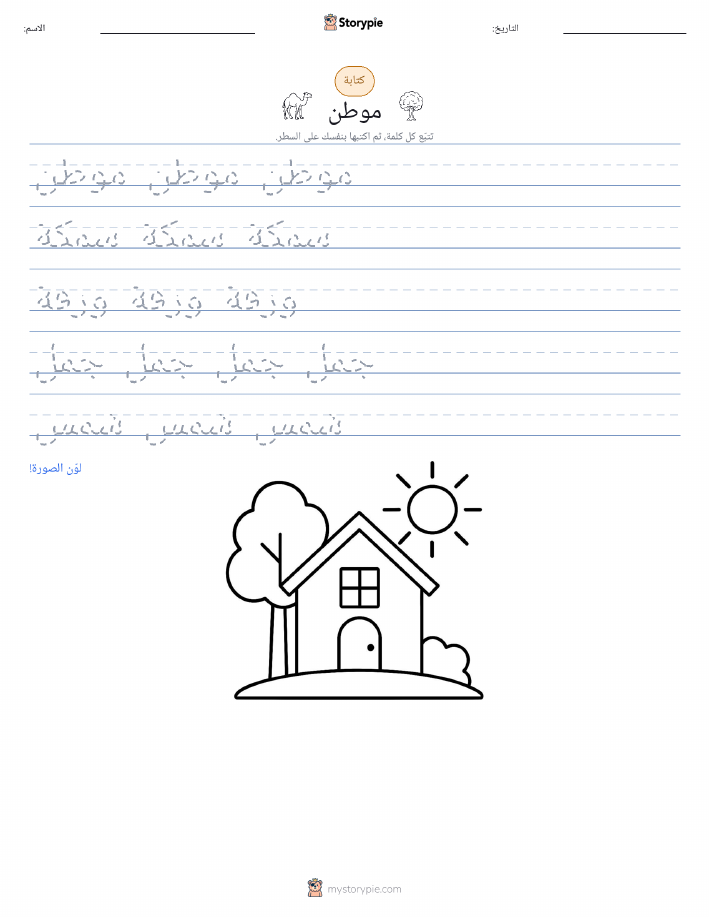 الاسم:
Storypie
التاريخ:
كتابة
موطن
تتبّع كل كلمة، ثم اكتبها بنفسك على السطر.
موطن موطن موطن
سمكة سمكة سمكة
ورقة ورقة ورقة
جمل جمل جمل جمل
شمس شمس شمس
لوّن الصورة!
mystorypie.com